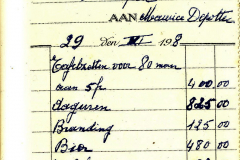 AAN Maurice Depotter
29 Den VII 198
Tafelzetten voor 80 man
aan 5 fr 400.00
Saguren 825.00
Branding 125.00
Bier 480.00